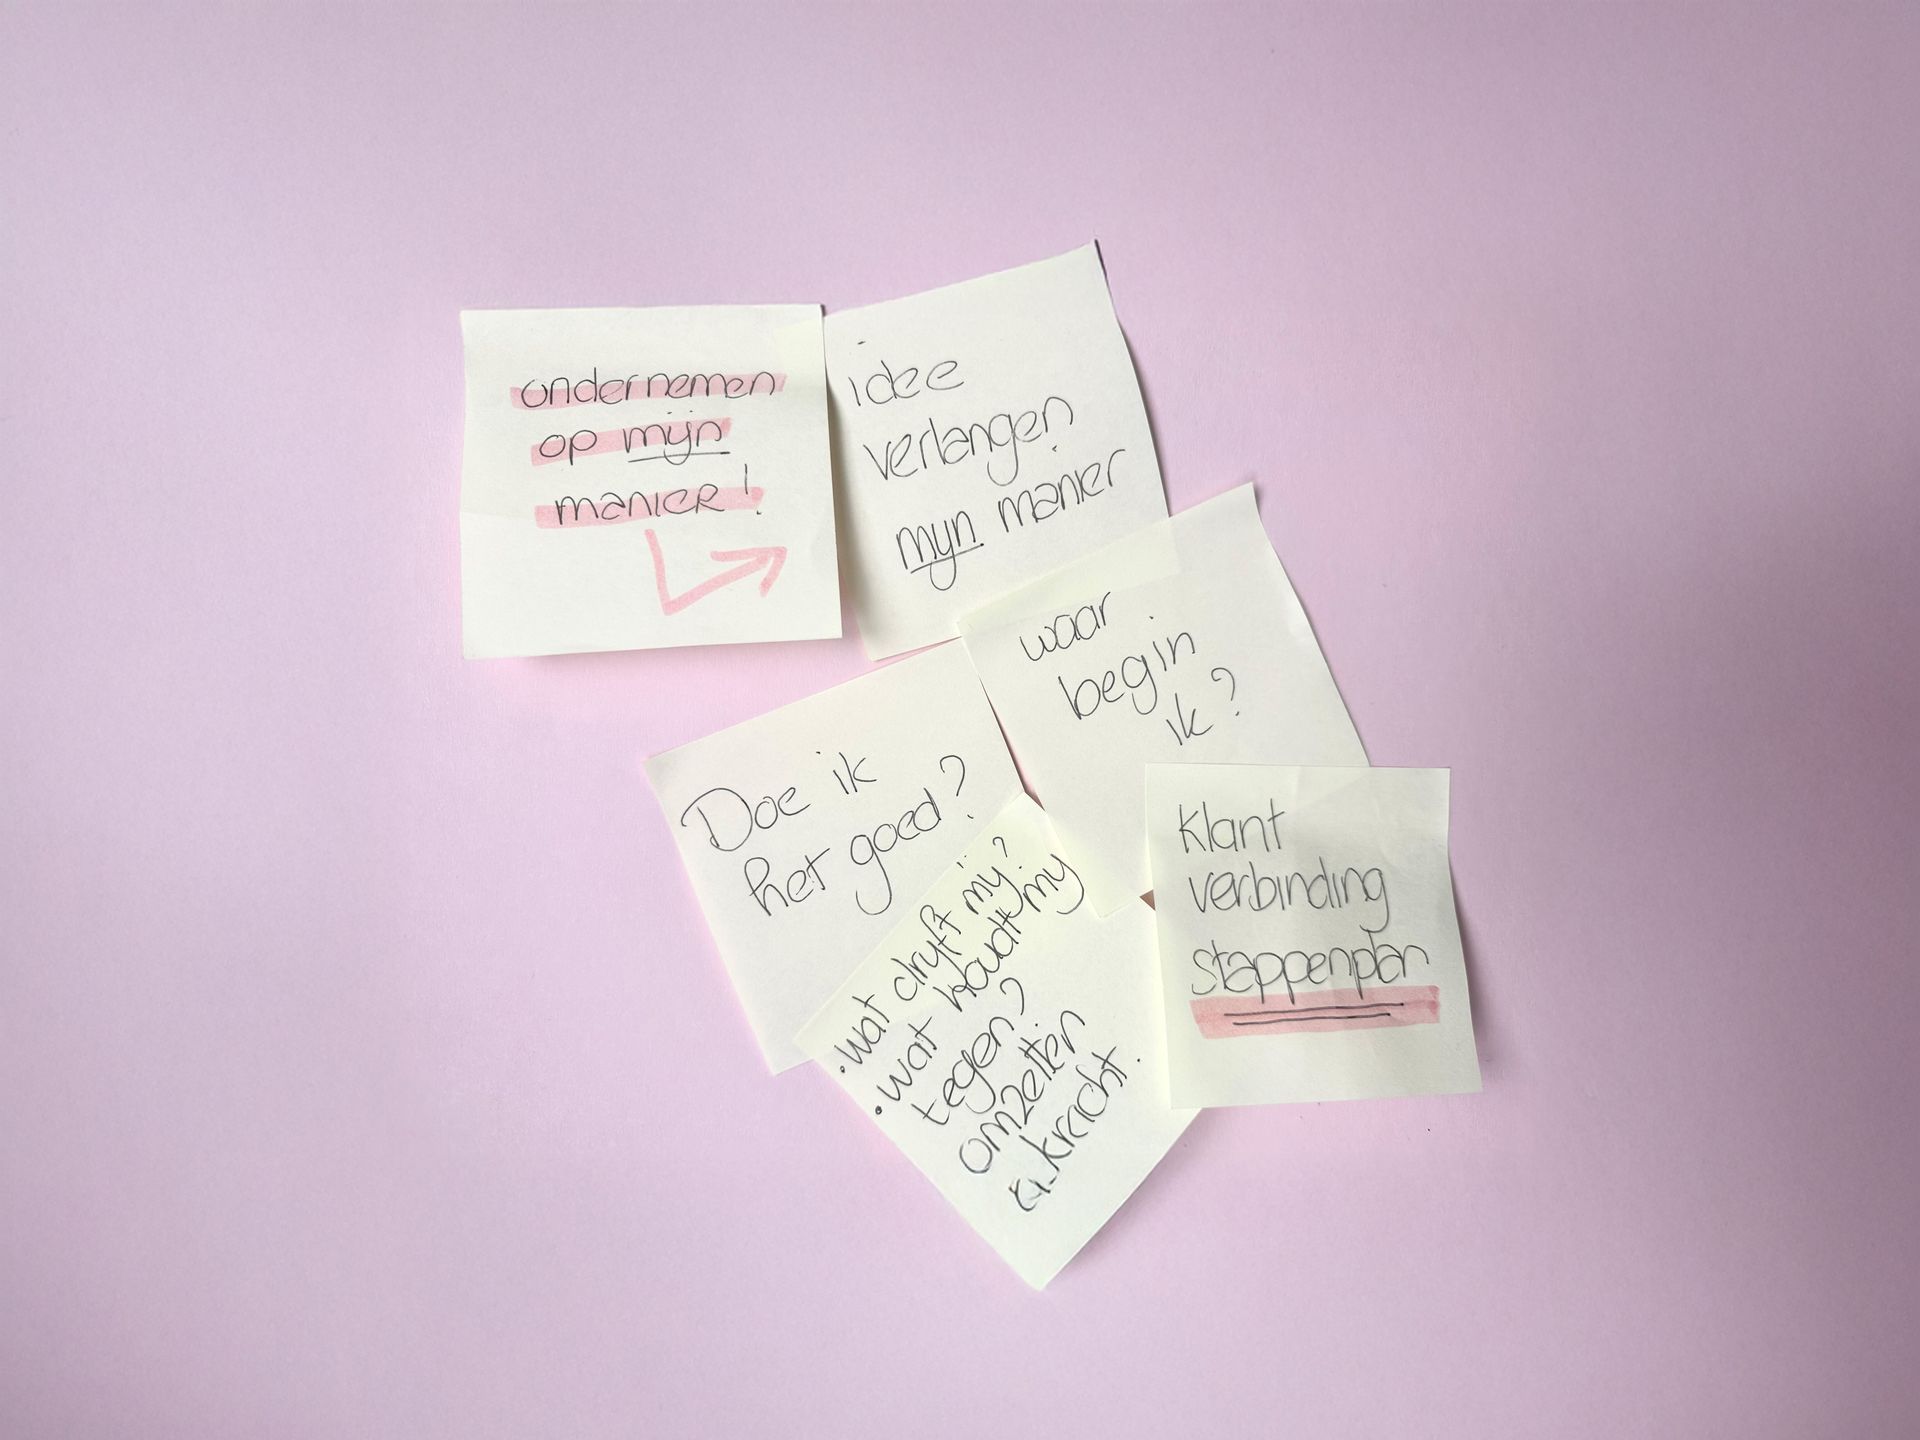 ondernemen
op mijn
manier!
idee
verlangen
mijn manier
waar
begin
ik?
Doe ik
het goed?
• wat drijft mij?
• wat houdt mij
tegen?
omzetten
kracht.
klant
verbinding
stappenplan